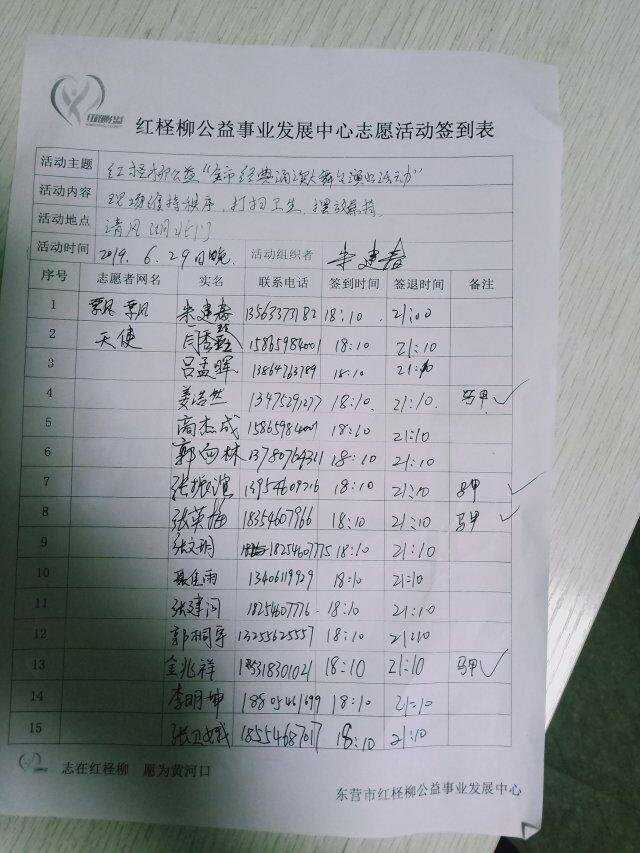 红柽柳公益事业发展中心志愿活动签到表
活动主题 红柽柳公益"全市经典诵读大舞台演出活动"
活动内容 现场维持秩序、打扫卫生、摆放桌椅
活动地点 清风湖北门
活动时间 2019.6.29日晚. 活动组织者 朱建春
序号 志愿者网名 实名 联系电话 签到时间 签退时间 备注
1 飘飘 朱建春 13563373182 18:10. 21:00
2 天使 闫秀 15865984001 18:10 21:10
3 吕孟晖 13864763789 18:10 21:10
4 姜浩然 13475291277 18:10. 21:10. 马甲 ✓
5 高杰成 15865984001 18:10 21:10
6 郭向林 13780764311 18:10 21:10
7 张振滨 13954609216 18:10 21:10 马甲 ✓
8 张英梅 18354607966 18:10 21:10 马甲 ✓
9 张文明 18254607775 18:10 21:10
10 聂佳雨 13406119929 18:10 21:10
11 张建河 18254607776. 18:10 21:10
12 郭桐宇 13255625557 18:10 21:10
13 金兆祥 18318301021 18:10 21:10 马甲 ✓
14 李明坤 18805461699 18:10 21:10
15 张卫娥 18554687017 18:10 21:10
志在红柽柳 愿为黄河口
东营市红柽柳公益事业发展中心